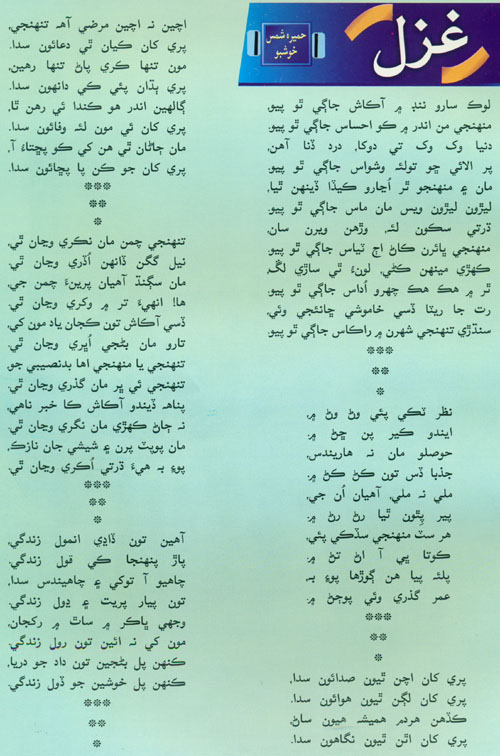 غزل
حميره شمس
خوشبو
لوڪ سارو ننڊ ۾ آڪاش جاڳي ٿو پيو،
منهنجي من اندر ۾ ڪو احساس جاڳي ٿو پيو.
دنيا وک وک تي دوکا، درد ڏنا آهن،
پر الائي ڇو توللءِ وشواس جاڳي ٿو پيو.
مان ۽ منهنجو ٿر اُڃارو ڪيڏا ڏينهن ٿيا،
ليڙون ليڙون ويس مان ماس جاڳي ٿو پيو.
ڌرتي سڪون لئہ، وڙهن ويرن سان،
منهنجي ڀائرن ڪاڻ اڄ ٿياس جاڳي ٿو پيو.
ڪهڙي مينهن ڪڻي، لونءَ ٿي ساڙي لڱ،
ٿر ۾ هڪ هڪ چهرو اُداس جاڳي ٿو پيو.
رت جا ريٽا ڏسي خاموشي ڇانئجي وئي،
سنڌڙي تنهنجي شهرن ۾ راڪاس جاڳي ٿو پيو.
نظر ٽڪي پئي وڻ وڻ ۾،
ايندو ڪير پن ڇڻ ۾.
حوصلو مان نہ هاريندس،
جذبا ڏس تون ڪڻ ڪڻ ۾.
ملي نہ ملي، آهيان اُن جي،
پير پٿون ٿيا رڻ رڻ ۾.
هر سٽ منهنجي سڏڪي پئي،
ڪوتا ڀي آ اڻ تڻ ۾.
پلئہ پيا هن ڳوڙها پوءِ بہ،
عمر گذري وئي پوڄڻ ۾.
پري کان اچن ٿيون صدائون سدا،
پري کان لڳن ٿيون هوائون سدا.
ڪڏهن هردم هميشہ هيون ساڻ،
پري کان اٿن ٿيون نگاهون سدا.
اچين نہ اچين مرضي آهہ تنهنجي،
پري کان ڪيان ٿي دعائون سدا.
مون تنها ڪري پاڻ تنها رهين،
پري ٻڌان پئي ڪي دانهون سدا.
ڳالهين اندر هو ڪندا ئي رهن ٿا،
پري کان ئي مون لئہ وفائون سدا.
مان ڄاڻان ٿي هن کي ڪو پڇتاءُ آ،
پري کان جو ڪن پا پڇائون سدا.
تنهنجي چمن مان نڪري وڃان ٿي،
نيل گگن ڏانهن اُڏري وڃان ٿي.
مان سڳنڌ آهيان پرينءَ چمن جي،
ها! انهيءَ تر ۾ وکري وڃان ٿي.
ڏسي آڪاش تون ڪجان ياد مون کي،
تارو مان بڻجي اُڀري وڃان ٿي.
تنهنجي يا منهنجي اها بدنصيبي جو،
تنهنجي ئي ڀر مان گذري وڃان ٿي.
پناهہ ڏيندو آڪاش ڪا خبر ناهي،
نہ ڄاڻ ڪهڙي مان نگري وڃان ٿي.
مان پوپٽ پرن ۽ شيشي جان نازڪ،
پوءِ بہ هيءَ ڌرتي اُڪري وڃان ٿي.
آهين تون ڏاڍي انمول زندگي،
پاڙ پنهنجا ڪي قول زندگي.
چاهيو آ توکي ۽ چاهيندس سدا،
تون پيار پريت ۽ ڍول زندگي.
وجهي ڀاڪر ۾ ساٿ ۾ رکجان،
مون کي نہ ائين تون رول زندگي.
ڪنهن پل بڻجين تون داد جو دريا،
ڪنهن پل خوشين جو ڏول زندگي.